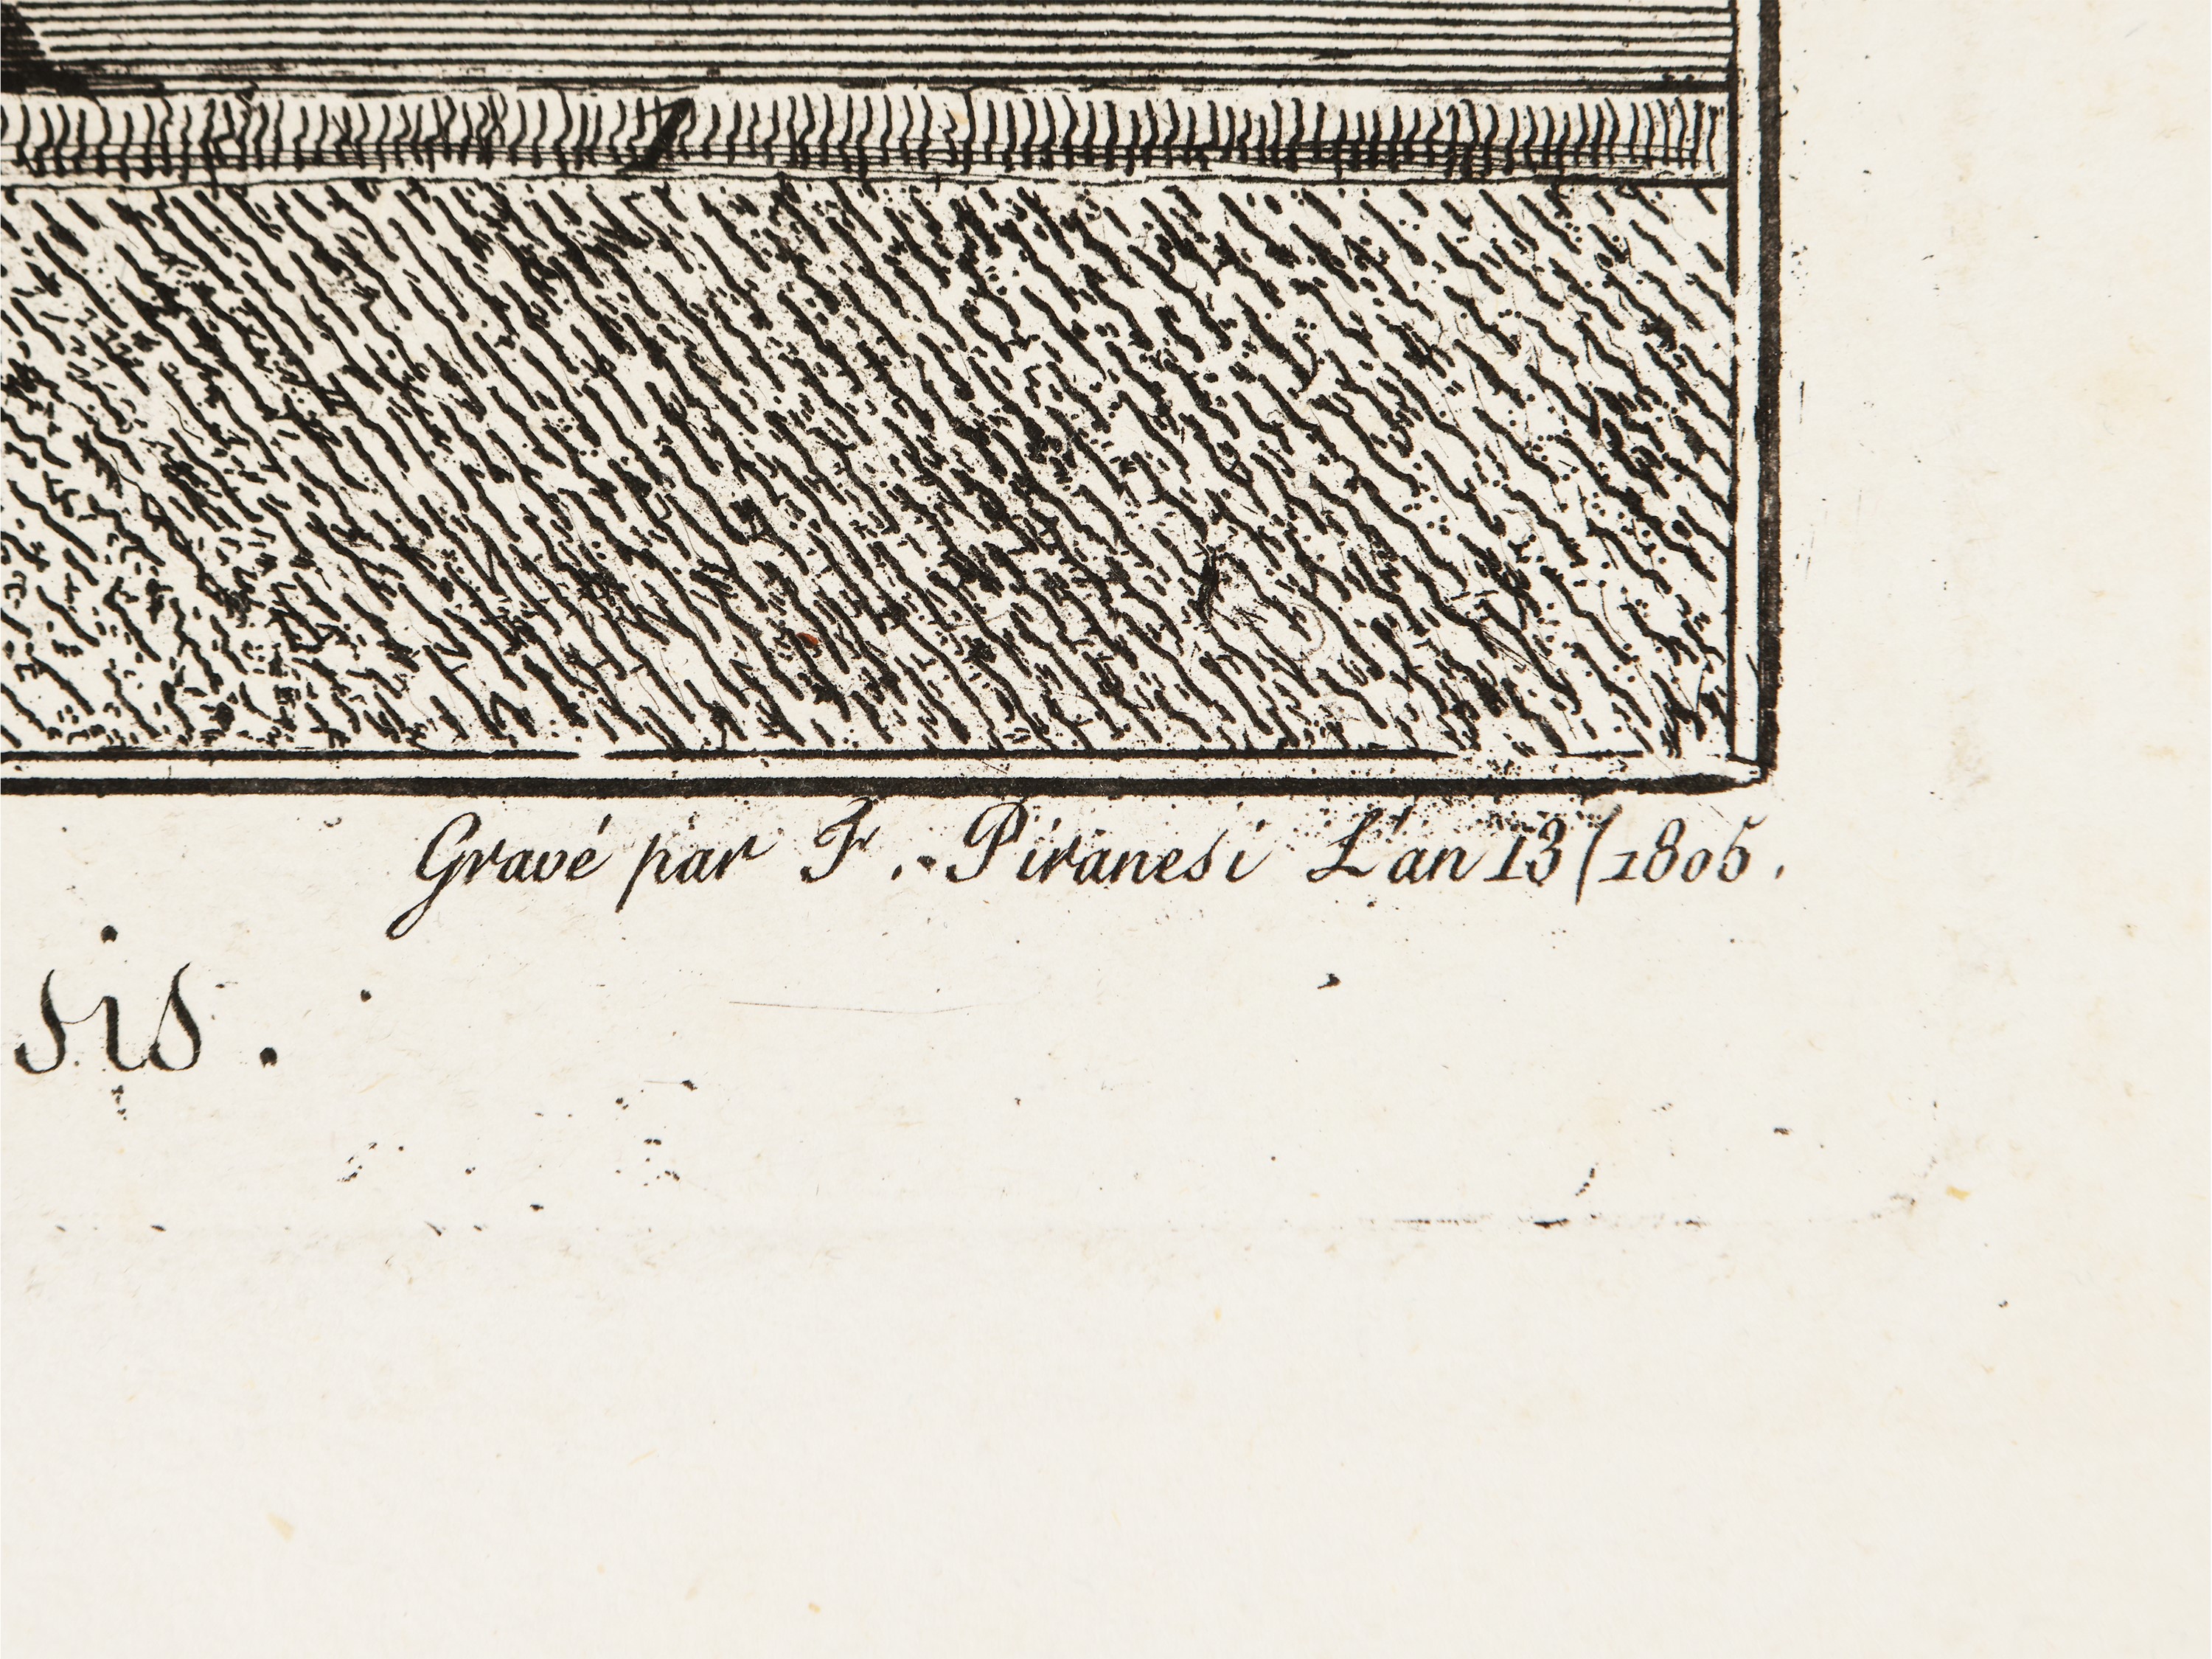 Gravé par F. Piranesi L'an 13 (1805.
sis.